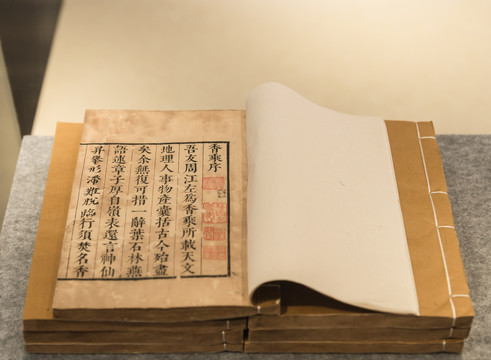 香乘序
吾友周江左爲香乘所載天文
地理人事物產囊括古今殆盡
矣余無復可措一辭葉石林燕
語述章子厚自嶺表還言神仙
昇舉形滯難脫臨行須焚名香